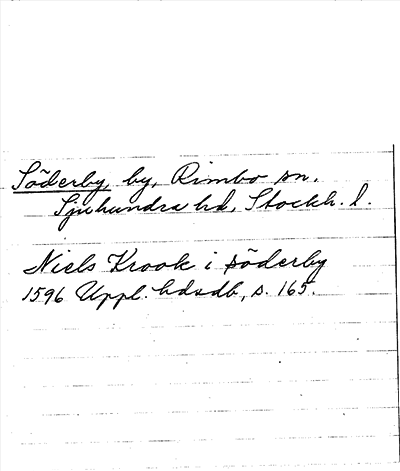 Söderby, by, Rimbo sn.
Sjuhundra hd, Stockh. l.
Niels Krook i söderby
1596 Uppl. hdsdb, s. 165.